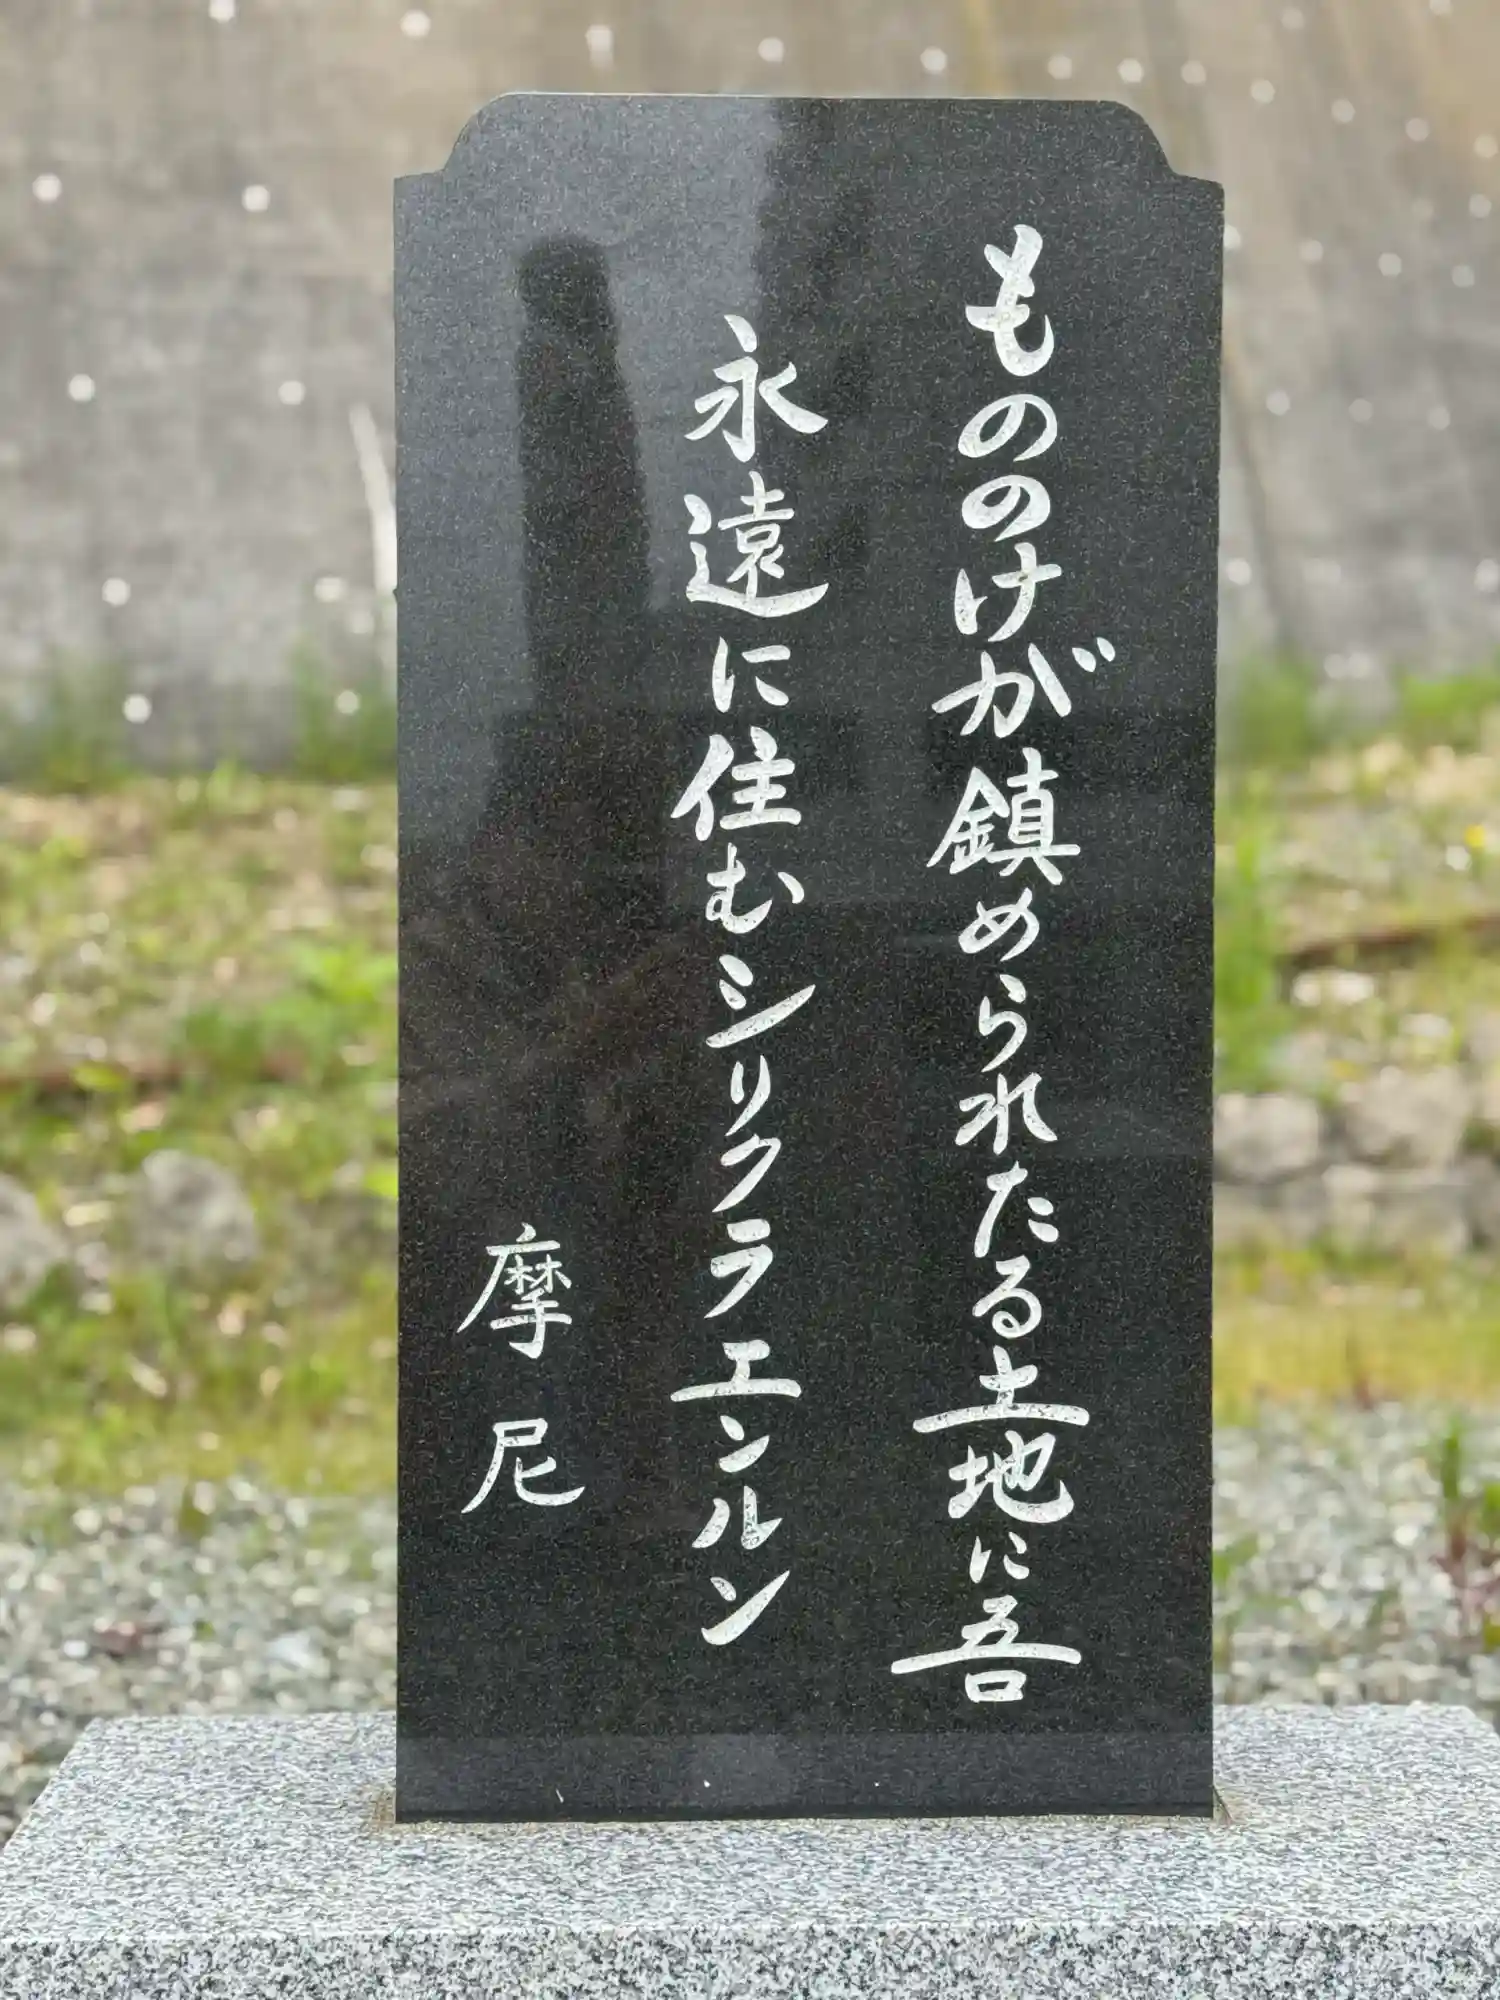 もののけが鎮められたる土地に吾
永遠に住むシリクラエンルン
摩尼